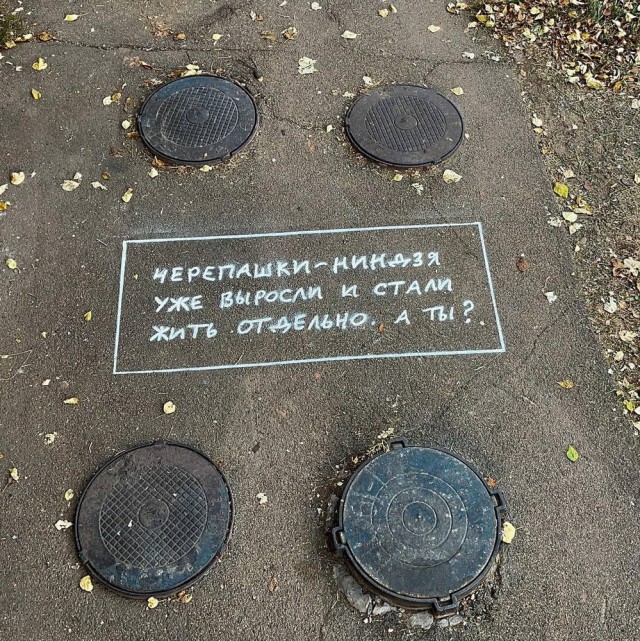 ЧЕРЕПАШКИ-НИНДЗЯ
УЖЕ ВЫРОСЛИ И СТАЛИ
ЖИТЬ ОТДЕЛЬНО. А ТЫ?